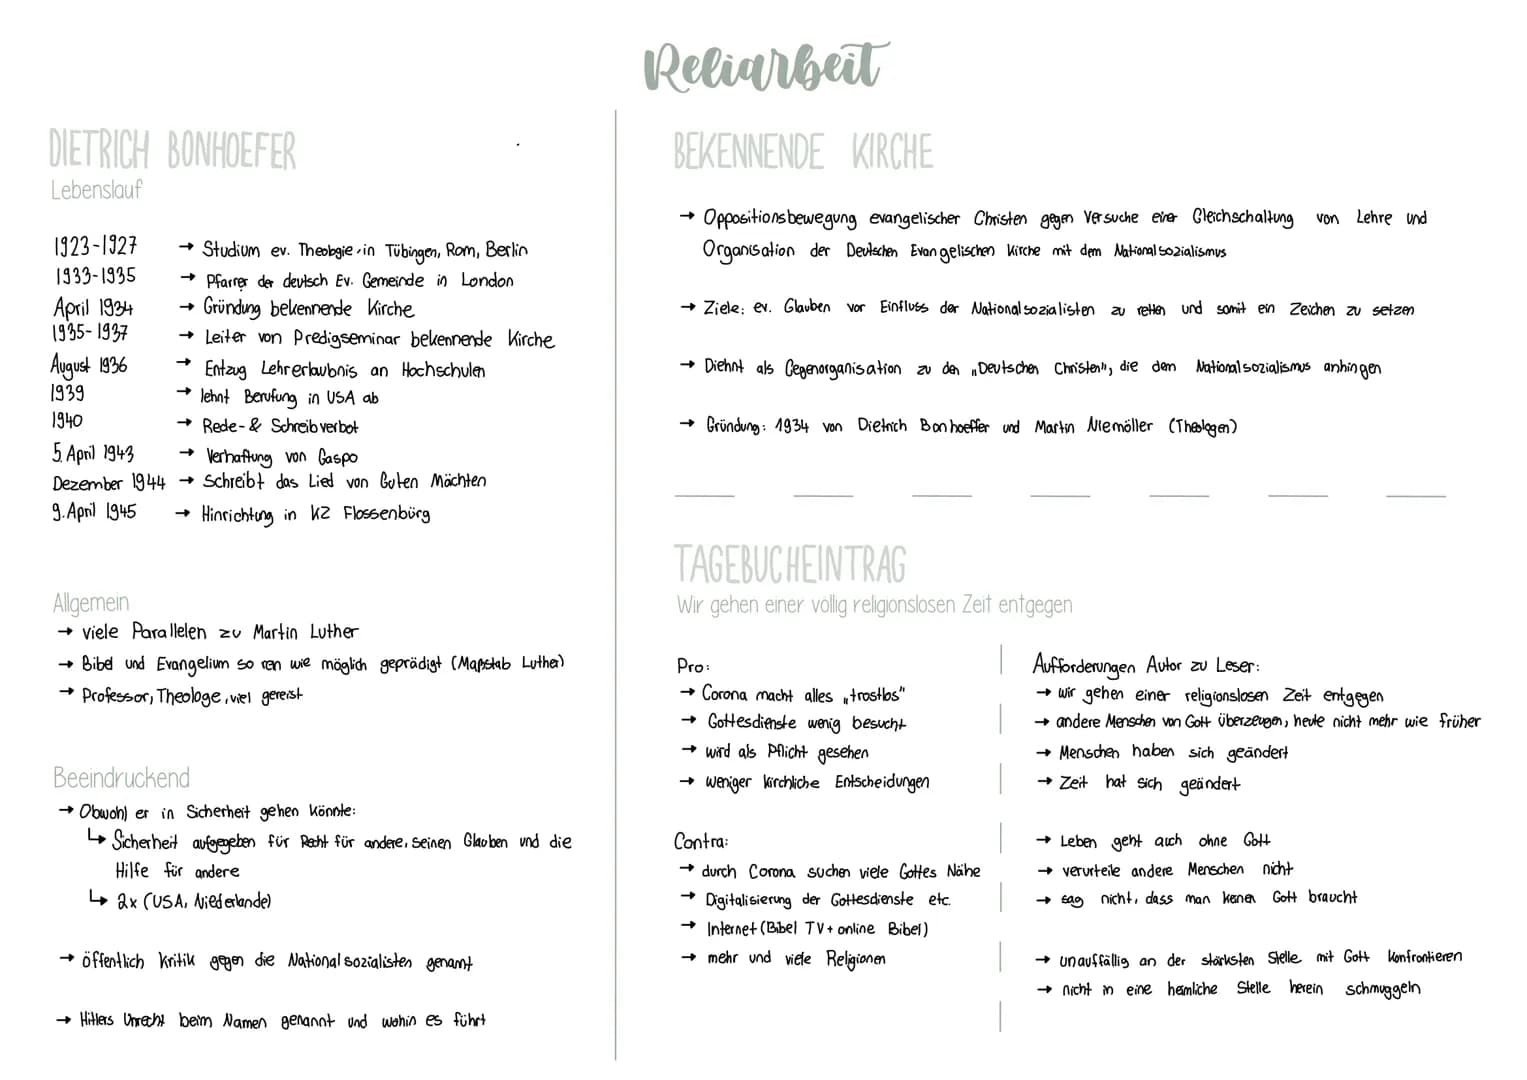 Reliarbeit
DIETRICH BONHOEFER
Lebenslauf
1923-1927 → Studium ev. Theologie in Tübingen, Rom, Berlin
1933-1935 → Pfarrer der deutsch Ev. Gemeinde in London
April 1934 → Gründung bekennende Kirche
1935-1937 → Leiter von Predigseminar bekennende Kirche
August 1936 → Entzug Lehrerlaubnis an Hochschulen
1939 → lehnt Berufung in USA ab
1940 → Rede- & Schreibverbot
5. April 1943 → Verhaftung von Gaspo
Dezember 1944 → Schreibt das Lied von Guten Mächten
9. April 1945 → Hinrichtung in KZ Flossenbürg
Allgemein
→ viele Parallelen zu Martin Luther
→ Bibel und Evangelium so ren wie möglich geprädigt (Maßstab Luther)
→ Professor, Theologe, viel gereist
Beeindruckend
→ Obwohl er in Sicherheit gehen könnte:
↳ Sicherheit aufgegeben für Recht für andere, seinen Glauben und die
Hilfe für andere
↳ 2x (USA, Niederlande)
→ öffentlich Kritik gegen die Nationalsozialisten genannt
→ Hitlers Unrecht beim Namen genannt und wohin es führt
BEKENNENDE KIRCHE
→ Oppositionsbewegung evangelischer Christen gegen Versuche einer Gleichschaltung von Lehre und
Organisation der Deutschen Evangelischen Kirche mit dem Nationalsozialismus
→ Ziele: ev. Glauben vor Einfluss der Nationalsozialisten zu retten und somit ein Zeichen zu setzen
→ Diehnt als Gegenorganisation zu den „Deutschen Christen", die dem Nationalsozialismus anhingen
→ Gründung: 1934 von Dietrich Bonhoeffer und Martin Niemöller (Theologen)
TAGEBUCHEINTRAG
Wir gehen einer völlig religionslosen Zeit entgegen
Pro:
→ Corona macht alles „trostlos"
→ Gottesdienste wenig besucht
→ wird als Pflicht gesehen
→ weniger kirchliche Entscheidungen
Contra:
→ durch Corona suchen viele Gottes Nähe
→ Digitalisierung der Gottesdienste etc.
→ Internet (Bibel TV + online Bibel)
→ mehr und viele Religionen
Aufforderungen Autor zu Leser:
→ wir gehen einer religionslosen Zeit entgegen
→ andere Menschen von Gott überzeugen, heute nicht mehr wie früher
→ Menschen haben sich geändert
→ Zeit hat sich geändert
→ Leben geht auch ohne Gott
→ verurteile andere Menschen nicht
→ sag nicht, dass man kenen Gott braucht
→ unauffällig an der stärksten Stelle mit Gott konfrontieren
→ nicht in eine heimliche Stelle herein schmuggeln